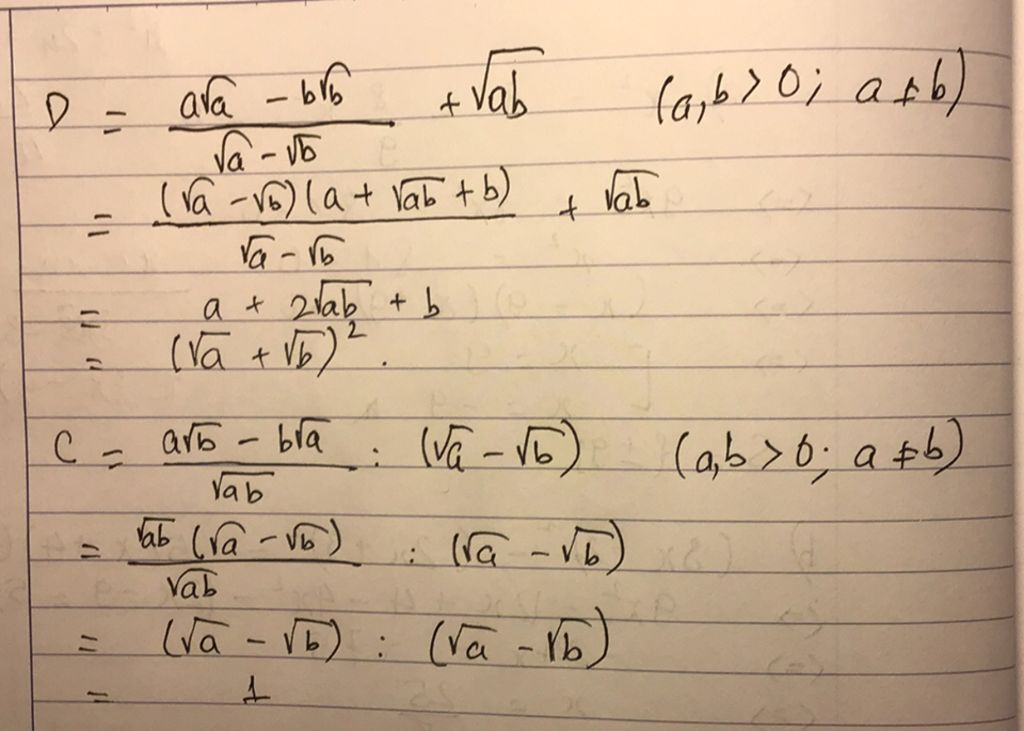 D = (a√a − b√b)/(√a − √b) + √ab (a,b > 0; a ≠ b)
= (√a − √b)(a + √ab + b)/(√a − √b) + √ab
= a + 2√ab + b
= (√a + √b)².
C = (a√b − b√a)/√ab : (√a − √b) (a,b > 0; a ≠ b)
= √ab (√a − √b)/√ab : (√a − √b)
= (√a − √b) : (√a − √b)
= 1